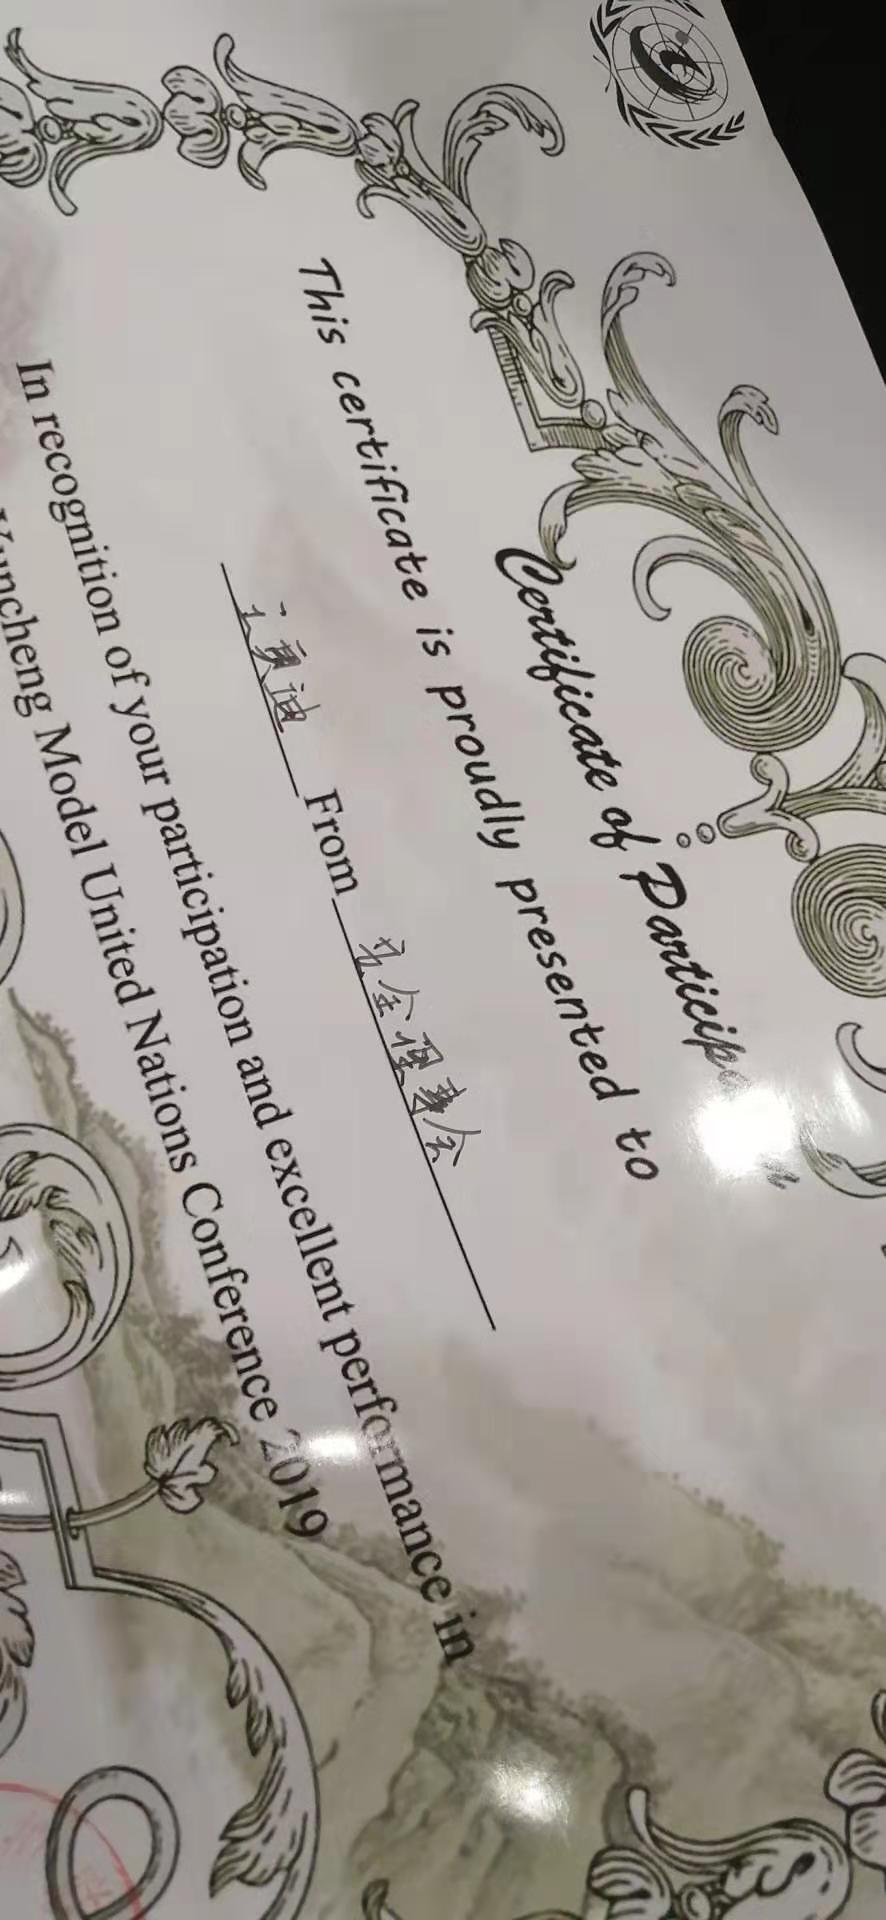 Certificate of Participation
This certificate is proudly presented to
From 安全理事会
In recognition of your participation and excellent performance in
Yuncheng Model United Nations Conference 2019